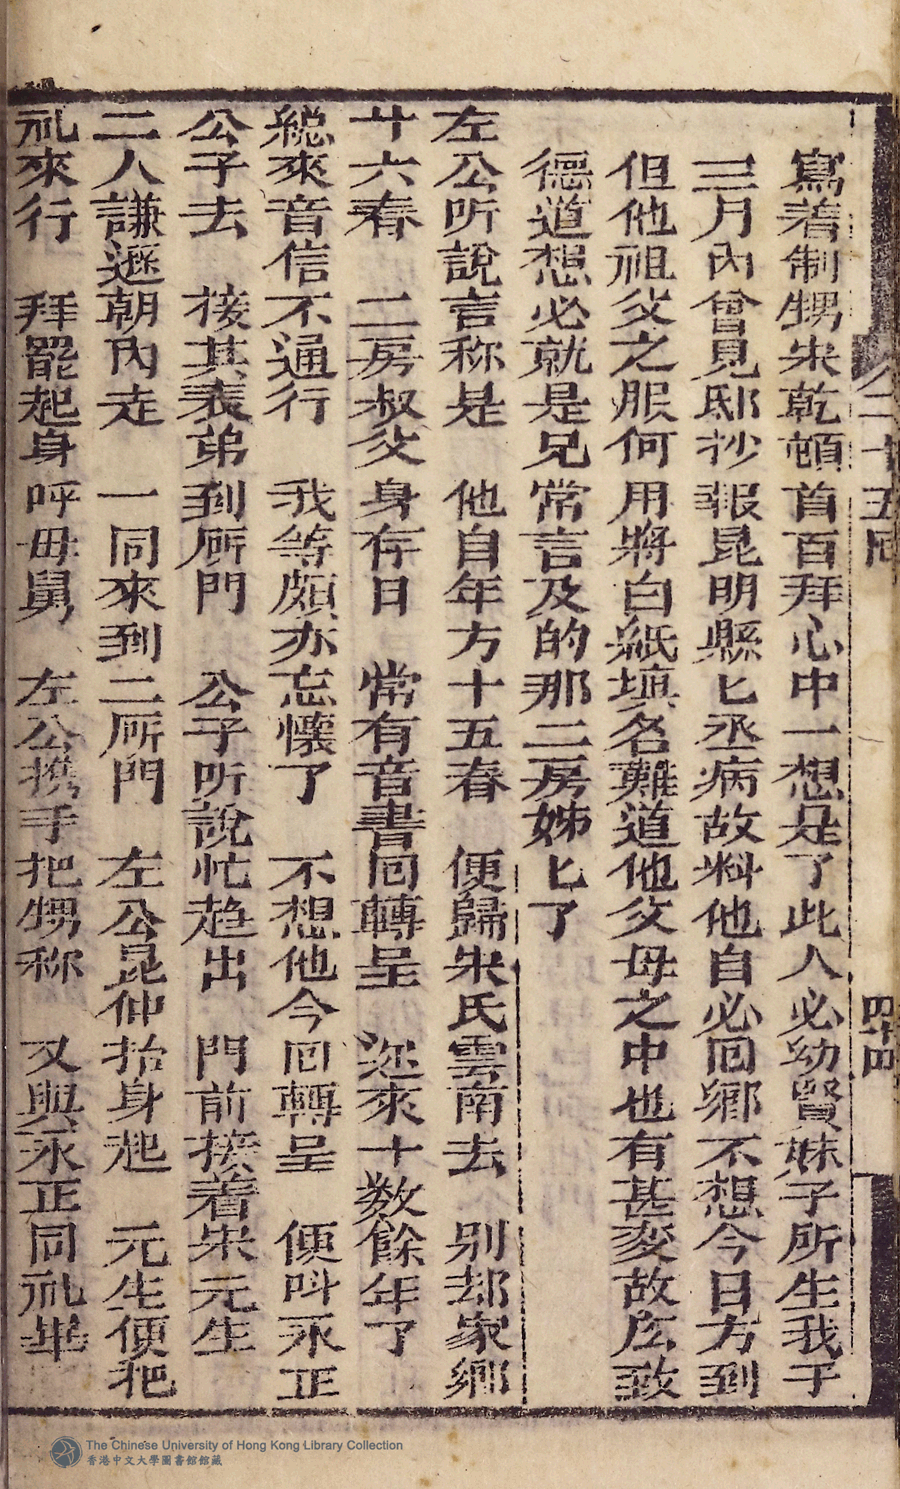 寫着制甥朱乾頓首百拜心中一想是了此人必幼賢妹子所生我于
三月內曾見邸抄報昆明縣匕丞病故料他自必囘鄉不想今日方到
但他祖父之服何用將白紙填名難道他父母之中也有甚変故庅致
德道想必就是兄常言及的那二房姊匕了
左公听說言称是　他自年方十五春　便歸朱氏雲南去　别却家鄉
廿六春　二房叔父身存日　常有音書囘轉呈　迩來十数餘年了
総來音信不通行　我等頗亦忘懷了　不想他今囘轉呈　便呌永正
公子去　接其表弟到厛門　公子听說忙趋出　門前接着朱元生
二人謙遜朝內走　一同來到二厛門　左公昆仲抬身起　元生便把
礼來行　拜罷起身呼毋舅　左公携手把甥称　又與永正同礼畢
二十五囘
四十四
The Chinese University of Hong Kong Library Collection
香港中文大學圖書館館藏